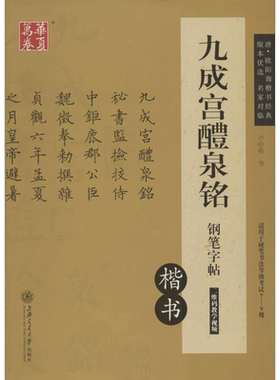 華夏萬卷
唐·欧阳询楷书经典
版本优选 名家对临
九成宫醴泉铭
钢笔字帖
卢中南 书
楷书
二维码教学视频
适用于硬笔书法等级考试
九成宮醴泉銘
祕書監撿挍侍
中鉅鹿郡公臣
魏徵奉勅撰維
貞觀六年孟夏
之月皇帝避暑
上海交通大学出版社